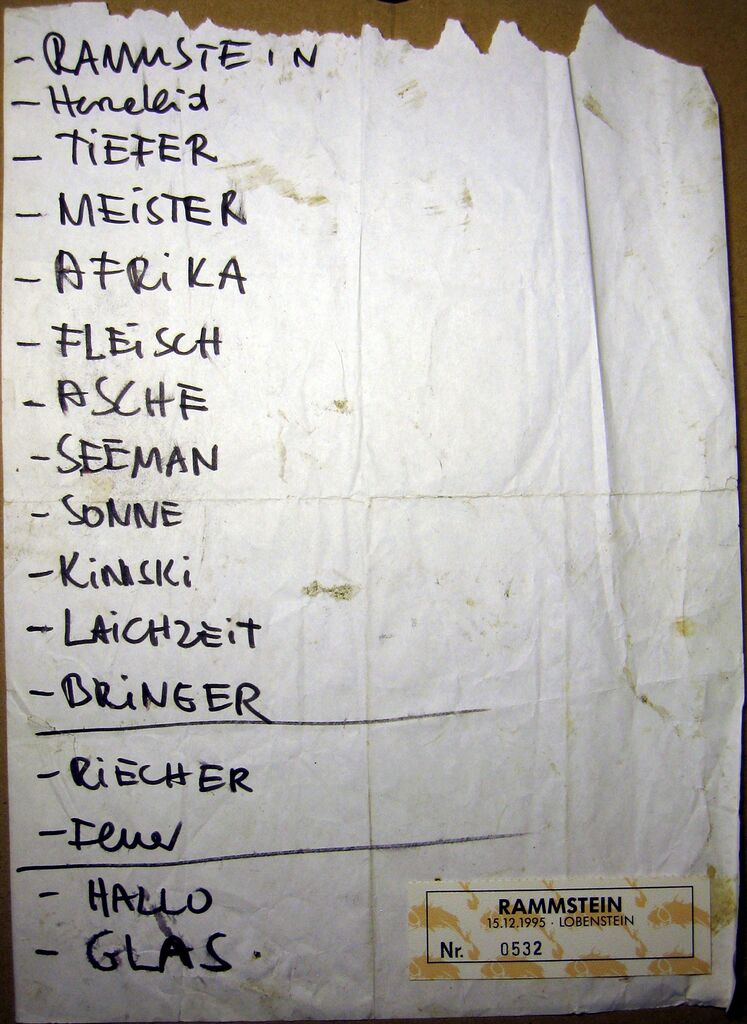 - RAMMSTEIN
- Herzeleid
- TIEFER
- MEISTER
- AFRIKA
- FLEISCH
- ASCHE
- SEEMAN
- SONNE
- KINSKI
- LAICHZEIT
- BRINGER
- RIECHER
- Feuer
- HALLO
- GLAS.
RAMMSTEIN
15.12.1995 · LOBENSTEIN
Nr. 0532